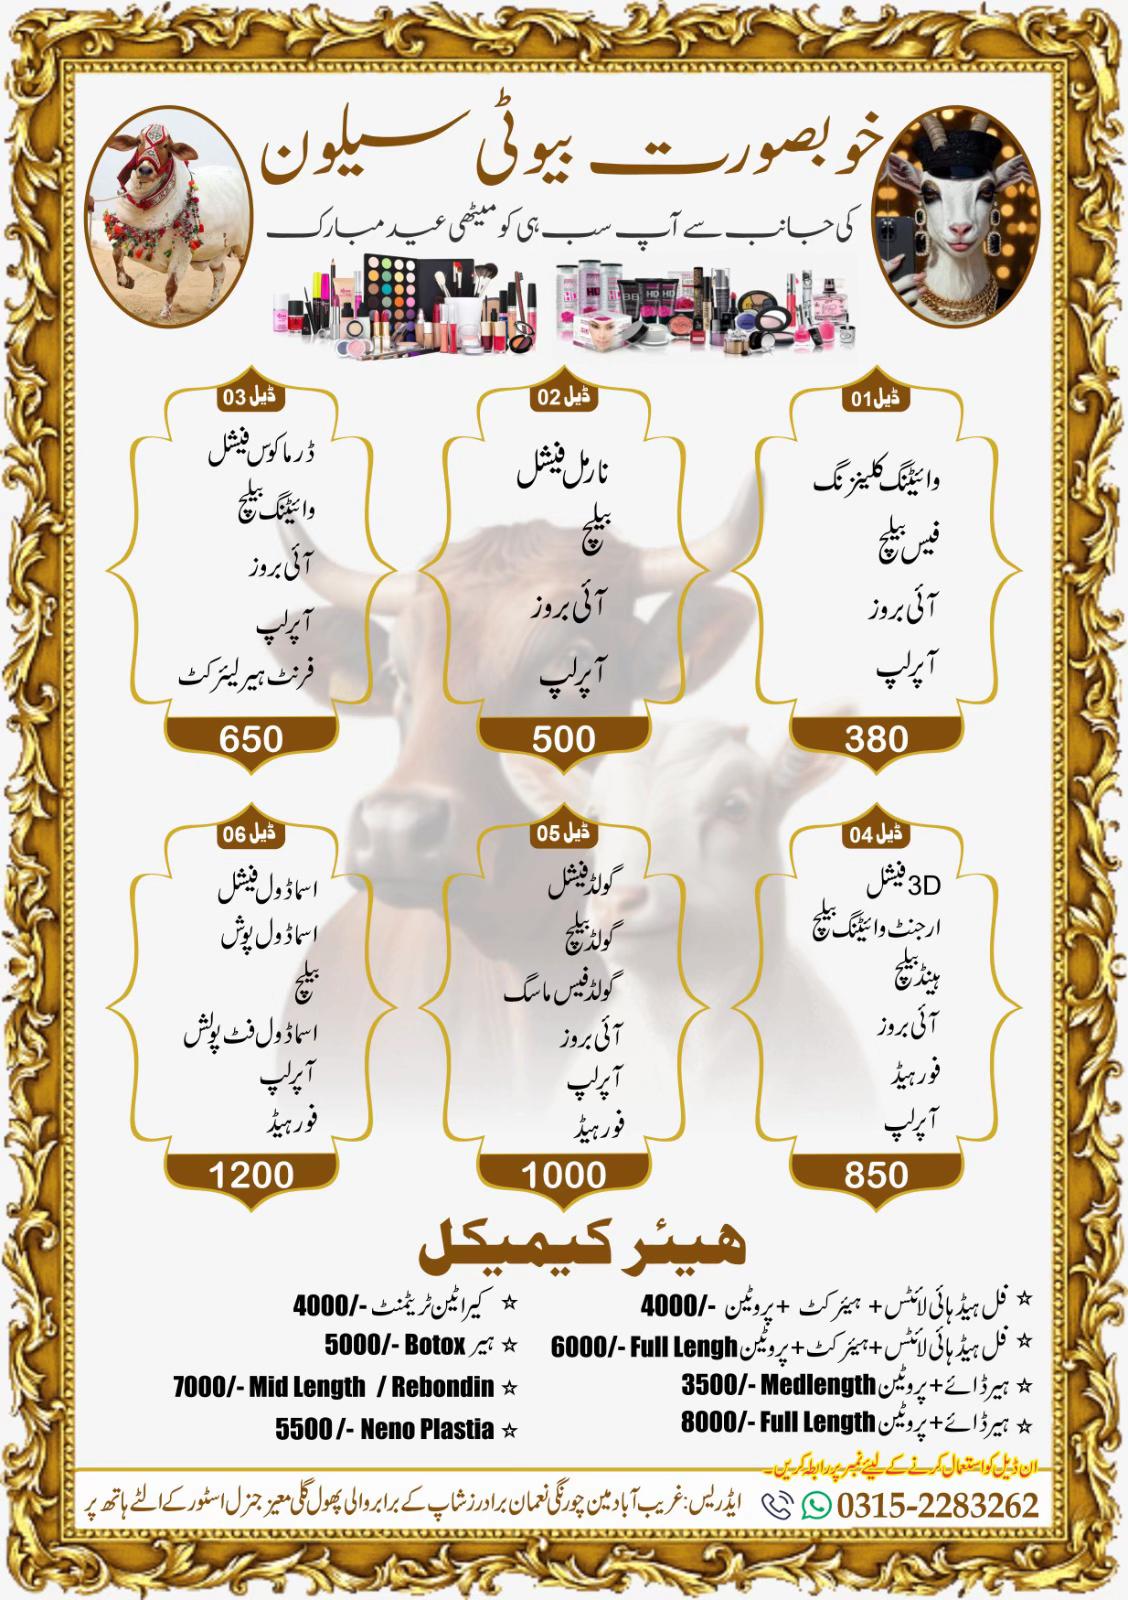 خوبصورت بیوٹی سیلون
کی جانب سے آپ سب ہی کو میٹھی عید مبارک
ڈیل 01
وائیٹنگ کلینزنگ
فیس بیلچ
آئی بروز
آپرلپ
380
ڈیل 02
نارمل فیشل
بیلچ
آئی بروز
آپرلپ
500
ڈیل 03
ڈرماکوس فیشل
وائیٹنگ بیلچ
آئی بروز
آپرلپ
فرنٹ ہیر لیئر کٹ
650
ڈیل 04
3D فیشل
ارجنٹ وائیٹنگ بیلچ
ہینڈ بیلچ
آئی بروز
فورہیڈ
آپرلپ
850
ڈیل 05
گولڈ فیشل
گولڈ بیلچ
گولڈ فیس ماسگ
آئی بروز
آپرلپ
فورہیڈ
1000
ڈیل 06
اسماڈول فیشل
اسماڈول پوش
بیلچ
اسماڈول فٹ پولش
آپرلپ
فورہیڈ
1200
ھیئر کیمیکل
☆ فل ہیڈ ہائی لائٹس + ہیئر کٹ + پروٹین 4000/-
☆ فل ہیڈ ہائی لائٹس + ہیئر کٹ + پروٹین Full Lengh 6000/-
☆ ہیر ڈائے + پروٹین Medlength 3500/-
☆ ہیر ڈائے + پروٹین Full Length 8000/-
☆ کیراٹین ٹریٹمنٹ 4000/-
☆ ہیر Botox 5000/-
☆ 7000/- Mid Length / Rebondin
☆ 5500/- Neno Plastia
ان ڈیل کو استعمال کرنے کے لیئے نمبر پر رابطہ کریں۔
0315-2283262
ایڈریس: غریب آباد مین چورنگی نعمان برادرز شاپ کے برابر والی پھول گلی معیز جنرل اسٹور کے الٹے ہاتھ پر